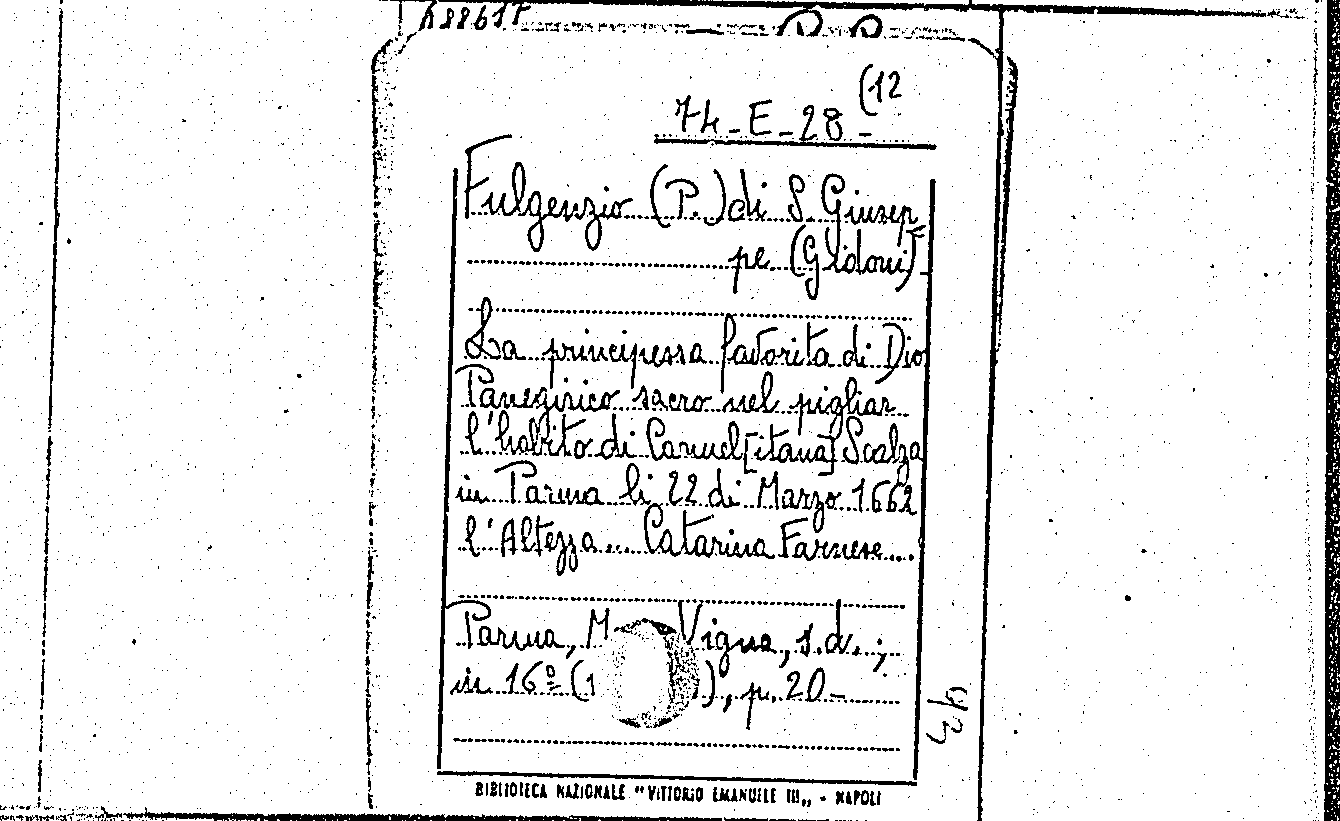 h88617
74-E-28-(12
Fulgenzio (P.) di S. Giusep=
pe (Gridoni)-
La principessa favorita di Dio
Panegirico sacro nel pigliar
l'habito di Carmel[itana] Scalza
in Parma li 22 di Marzo 1662
l'Altezza... Catarina Farnese....
Parma, M Vigna, s.d. ;
in 16º (1 ), p. 20-
43
BIBLIOTECA NAZIONALE "VITTORIO EMANUELE III„ - NAPOLI